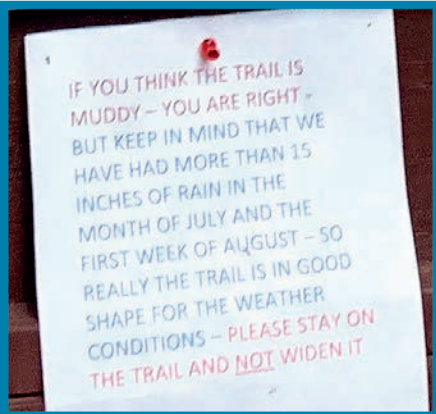 IF YOU THINK THE TRAIL IS
MUDDY – YOU ARE RIGHT -
BUT KEEP IN MIND THAT WE
HAVE HAD MORE THAN 15
INCHES OF RAIN IN THE
MONTH OF JULY AND THE
FIRST WEEK OF AUGUST – SO
REALLY THE TRAIL IS IN GOOD
SHAPE FOR THE WEATHER
CONDITIONS – PLEASE STAY ON
THE TRAIL AND NOT WIDEN IT